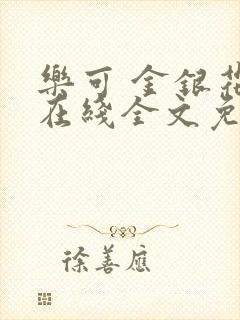 樂可 金銀花
在綫全文免
徐善應